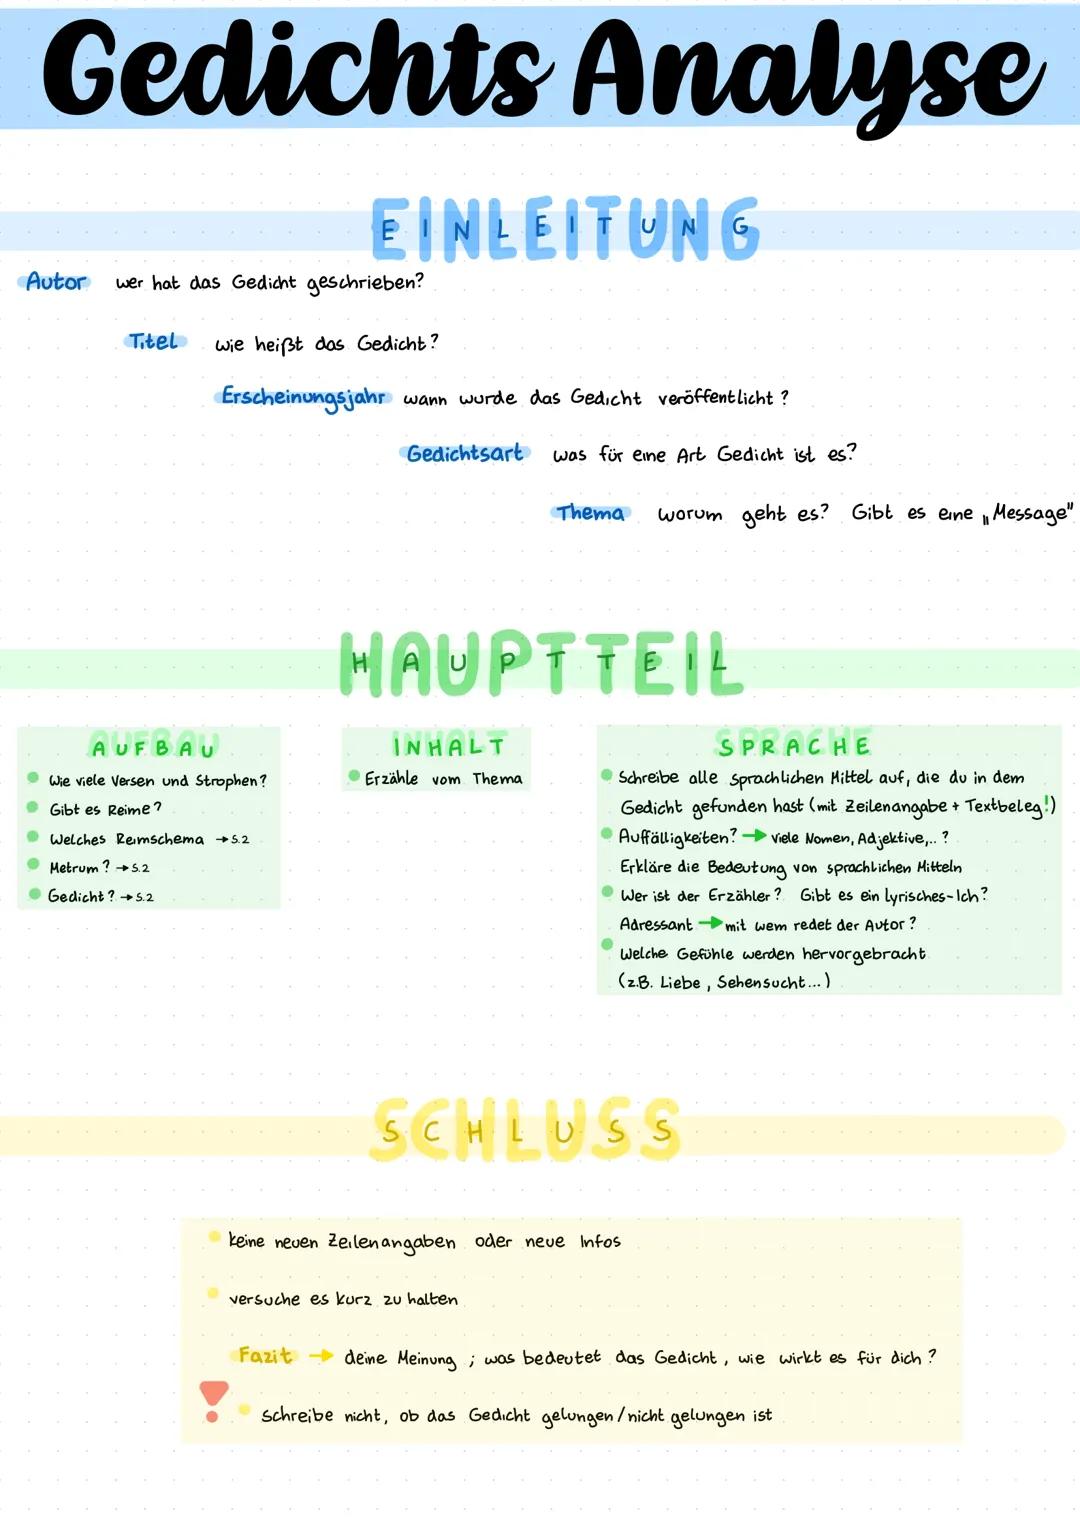 Gedichts Analyse
EINLEITUNG
Autor wer hat das Gedicht geschrieben?
Titel wie heißt das Gedicht?
Erscheinungsjahr wann wurde das Gedicht veröffentlicht?
Gedichtsart was für eine Art Gedicht ist es?
Thema worum geht es? Gibt es eine „Message"
HAUPTTEIL
AUFBAU
Wie viele Versen und Strophen?
Gibt es Reime?
Welches Reimschema → S.2
Metrum? → S.2
Gedicht? → S.2
INHALT
Erzähle vom Thema
SPRACHE
Schreibe alle sprachlichen Mittel auf, die du in dem
Gedicht gefunden hast (mit Zeilenangabe + Textbeleg!)
Auffälligkeiten? → viele Nomen, Adjektive,.. ?
Erkläre die Bedeutung von sprachlichen Mitteln
Wer ist der Erzähler? Gibt es ein lyrisches-Ich?
Adressant → mit wem redet der Autor?
Welche Gefühle werden hervorgebracht
(z.B. Liebe, Sehensucht...)
SCHLUSS
keine neuen Zeilenangaben oder neue Infos
versuche es kurz zu halten
Fazit → deine Meinung ; was bedeutet das Gedicht, wie wirkt es für dich?
! Schreibe nicht, ob das Gedicht gelungen/nicht gelungen ist